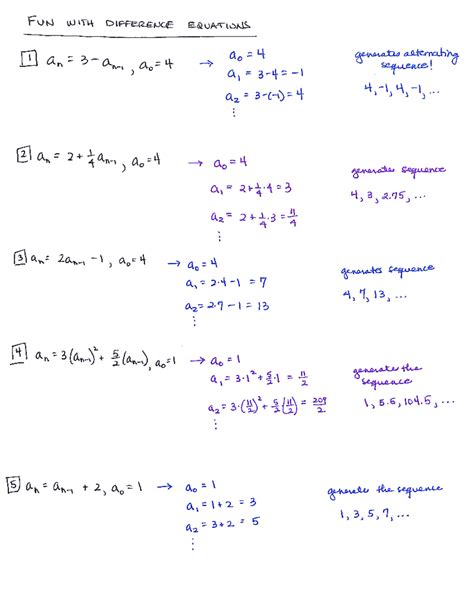 FUN WITH DIFFERENCE EQUATIONS
1 aₙ = 3 - aₙ₋₁, a₀ = 4 → a₀ = 4
a₁ = 3-4 = -1
a₂ = 3-(-1) = 4
⋮
generates alternating
sequence!
4, -1, 4, -1, ...
2 aₙ = 2 + 1/4 aₙ₋₁, a₀ = 4 → a₀ = 4
a₁ = 2 + 1/4 · 4 = 3
a₂ = 2 + 1/4 · 3 = 11/4
⋮
generates sequence
4, 3, 2.75, ...
3 aₙ = 2aₙ₋₁ - 1, a₀ = 4 → a₀ = 4
a₁ = 2·4 - 1 = 7
a₂ = 2·7 - 1 = 13
⋮
generates sequence
4, 7, 13, ...
4 aₙ = 3(aₙ₋₁)² + 5/2 (aₙ₋₁), a₀ = 1 → a₀ = 1
a₁ = 3·1² + 5/2 · 1 = 11/2
a₂ = 3·(11/2)² + 5/2 (11/2) = 209/2
⋮
generate the
sequence
1, 5.5, 104.5, ...
5 aₙ = aₙ₋₁ + 2, a₀ = 1 → a₀ = 1
a₁ = 1+2 = 3
a₂ = 3+2 = 5
⋮
generate the sequence
1, 3, 5, 7, ...